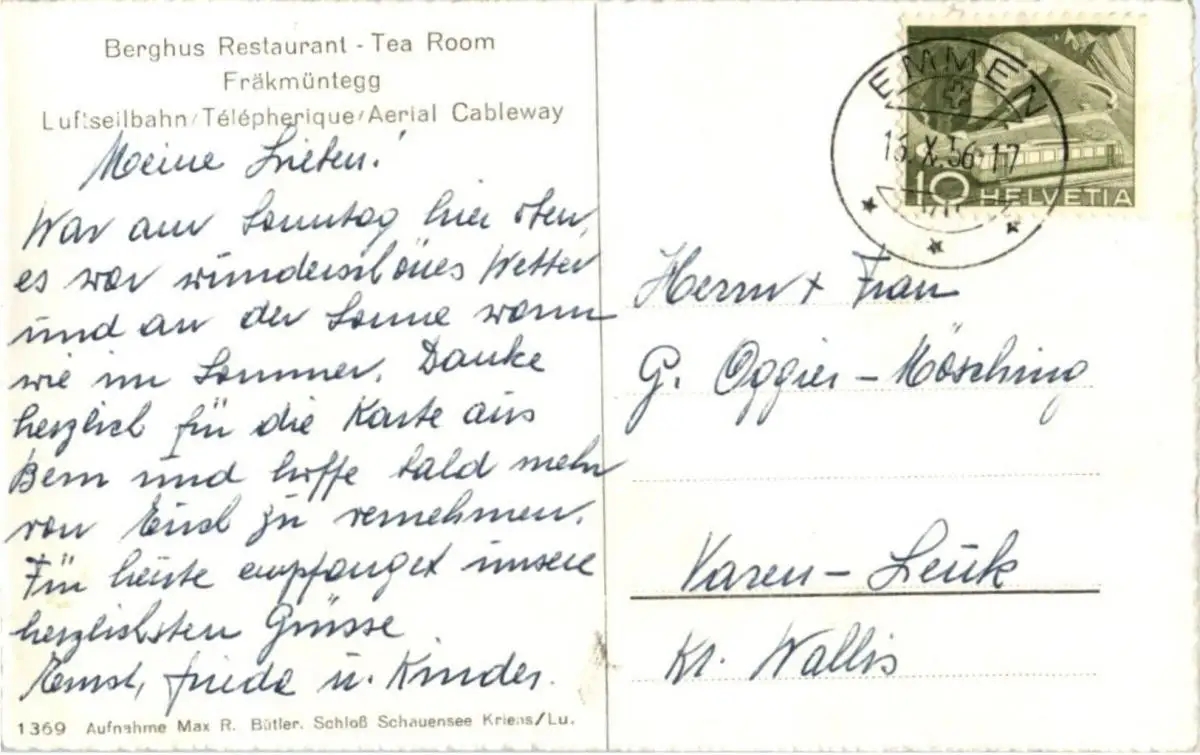 Berghus Restaurant - Tea Room
Fräkmüntegg
Luftseilbahn/Télépherique/Aerial Cableway
Meine Lieben!
War am Sonntag hier oben,
es war wunderschönes Wetter
und an der Sonne warm
wie im Sommer. Danke
herzlich für die Karte aus
Bern und hoffe bald mehr
von Euch zu vernehmen.
Für heute empfanget unsere
herzlichsten Grüsse
Ernst, Frieda u. Kinder.
1369 Aufnahme Max R. Bütler. Schloß Schauensee Kriens/Lu.
EMMEN
16.X.56-17
10 HELVETIA
Herrn + Frau
G. Oggier-Mösching
Varen-Leuk
Kt. Wallis